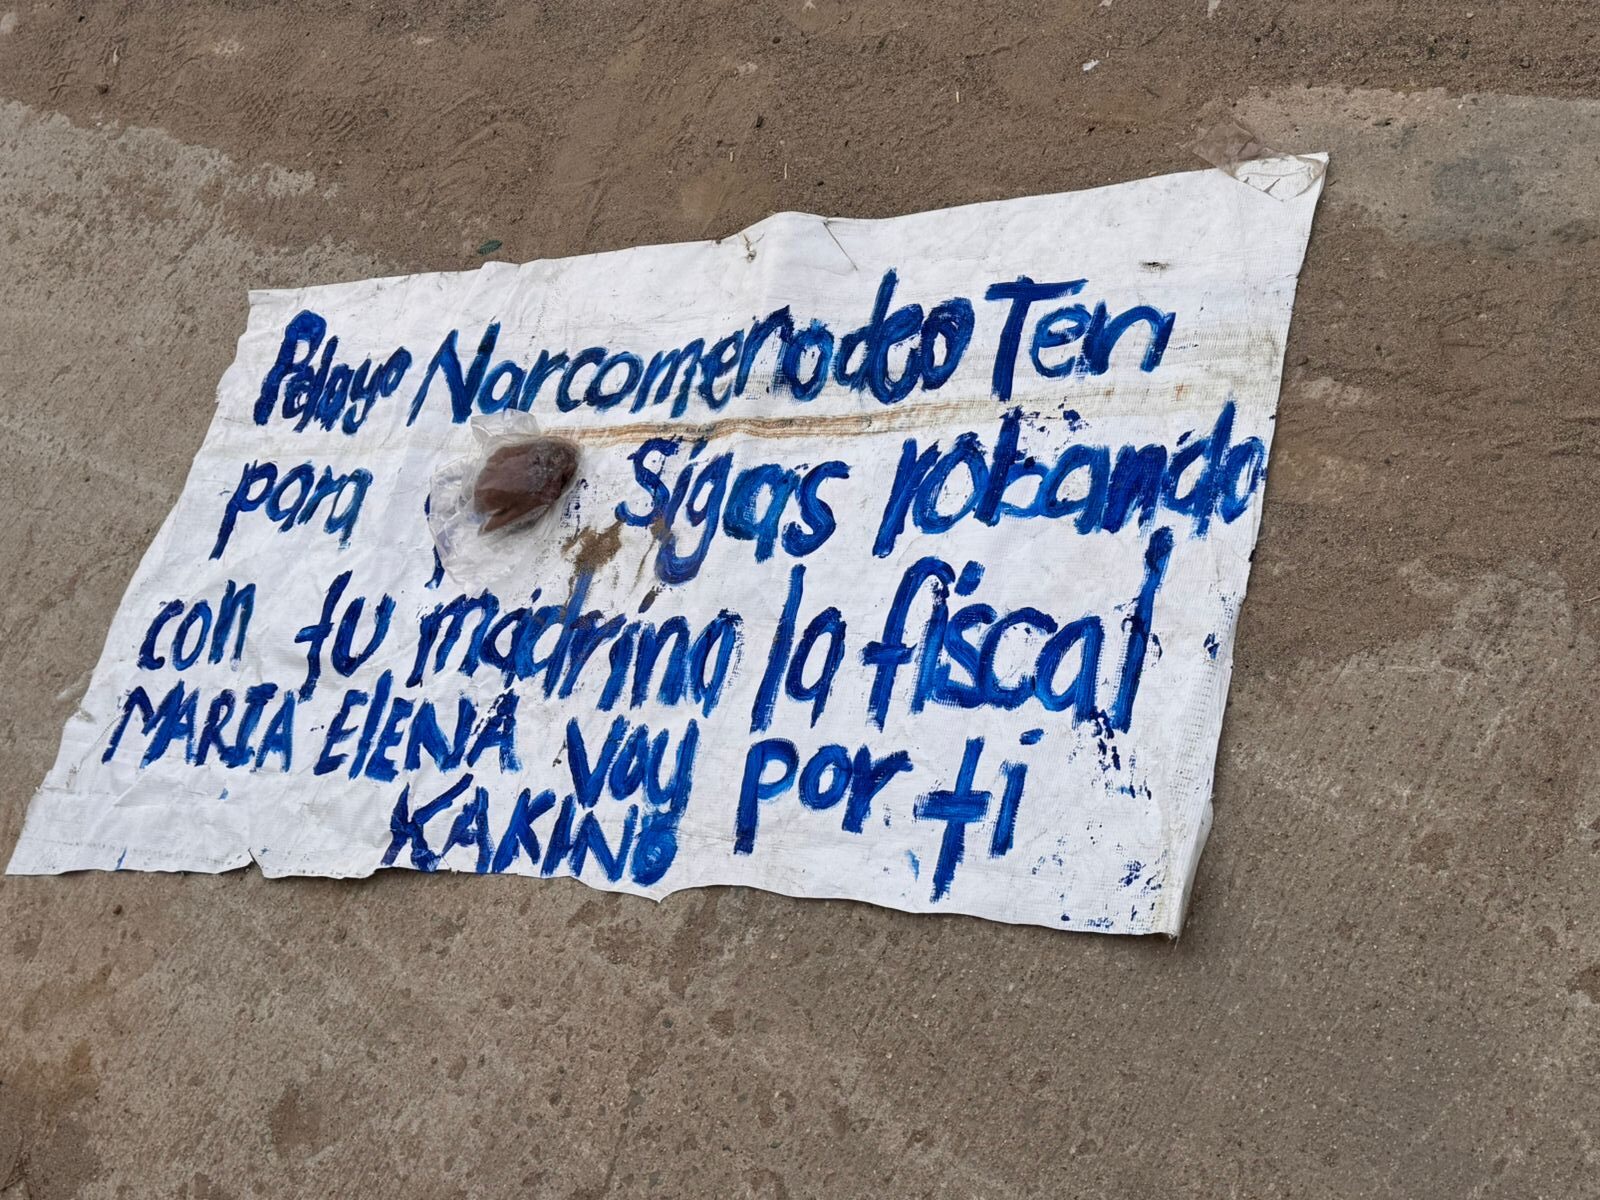 Pelayo Narcomerodeo Ten
para sigas robando
con tu madrina la fiscal
MARIA ElENA voy por ti
KAKINO